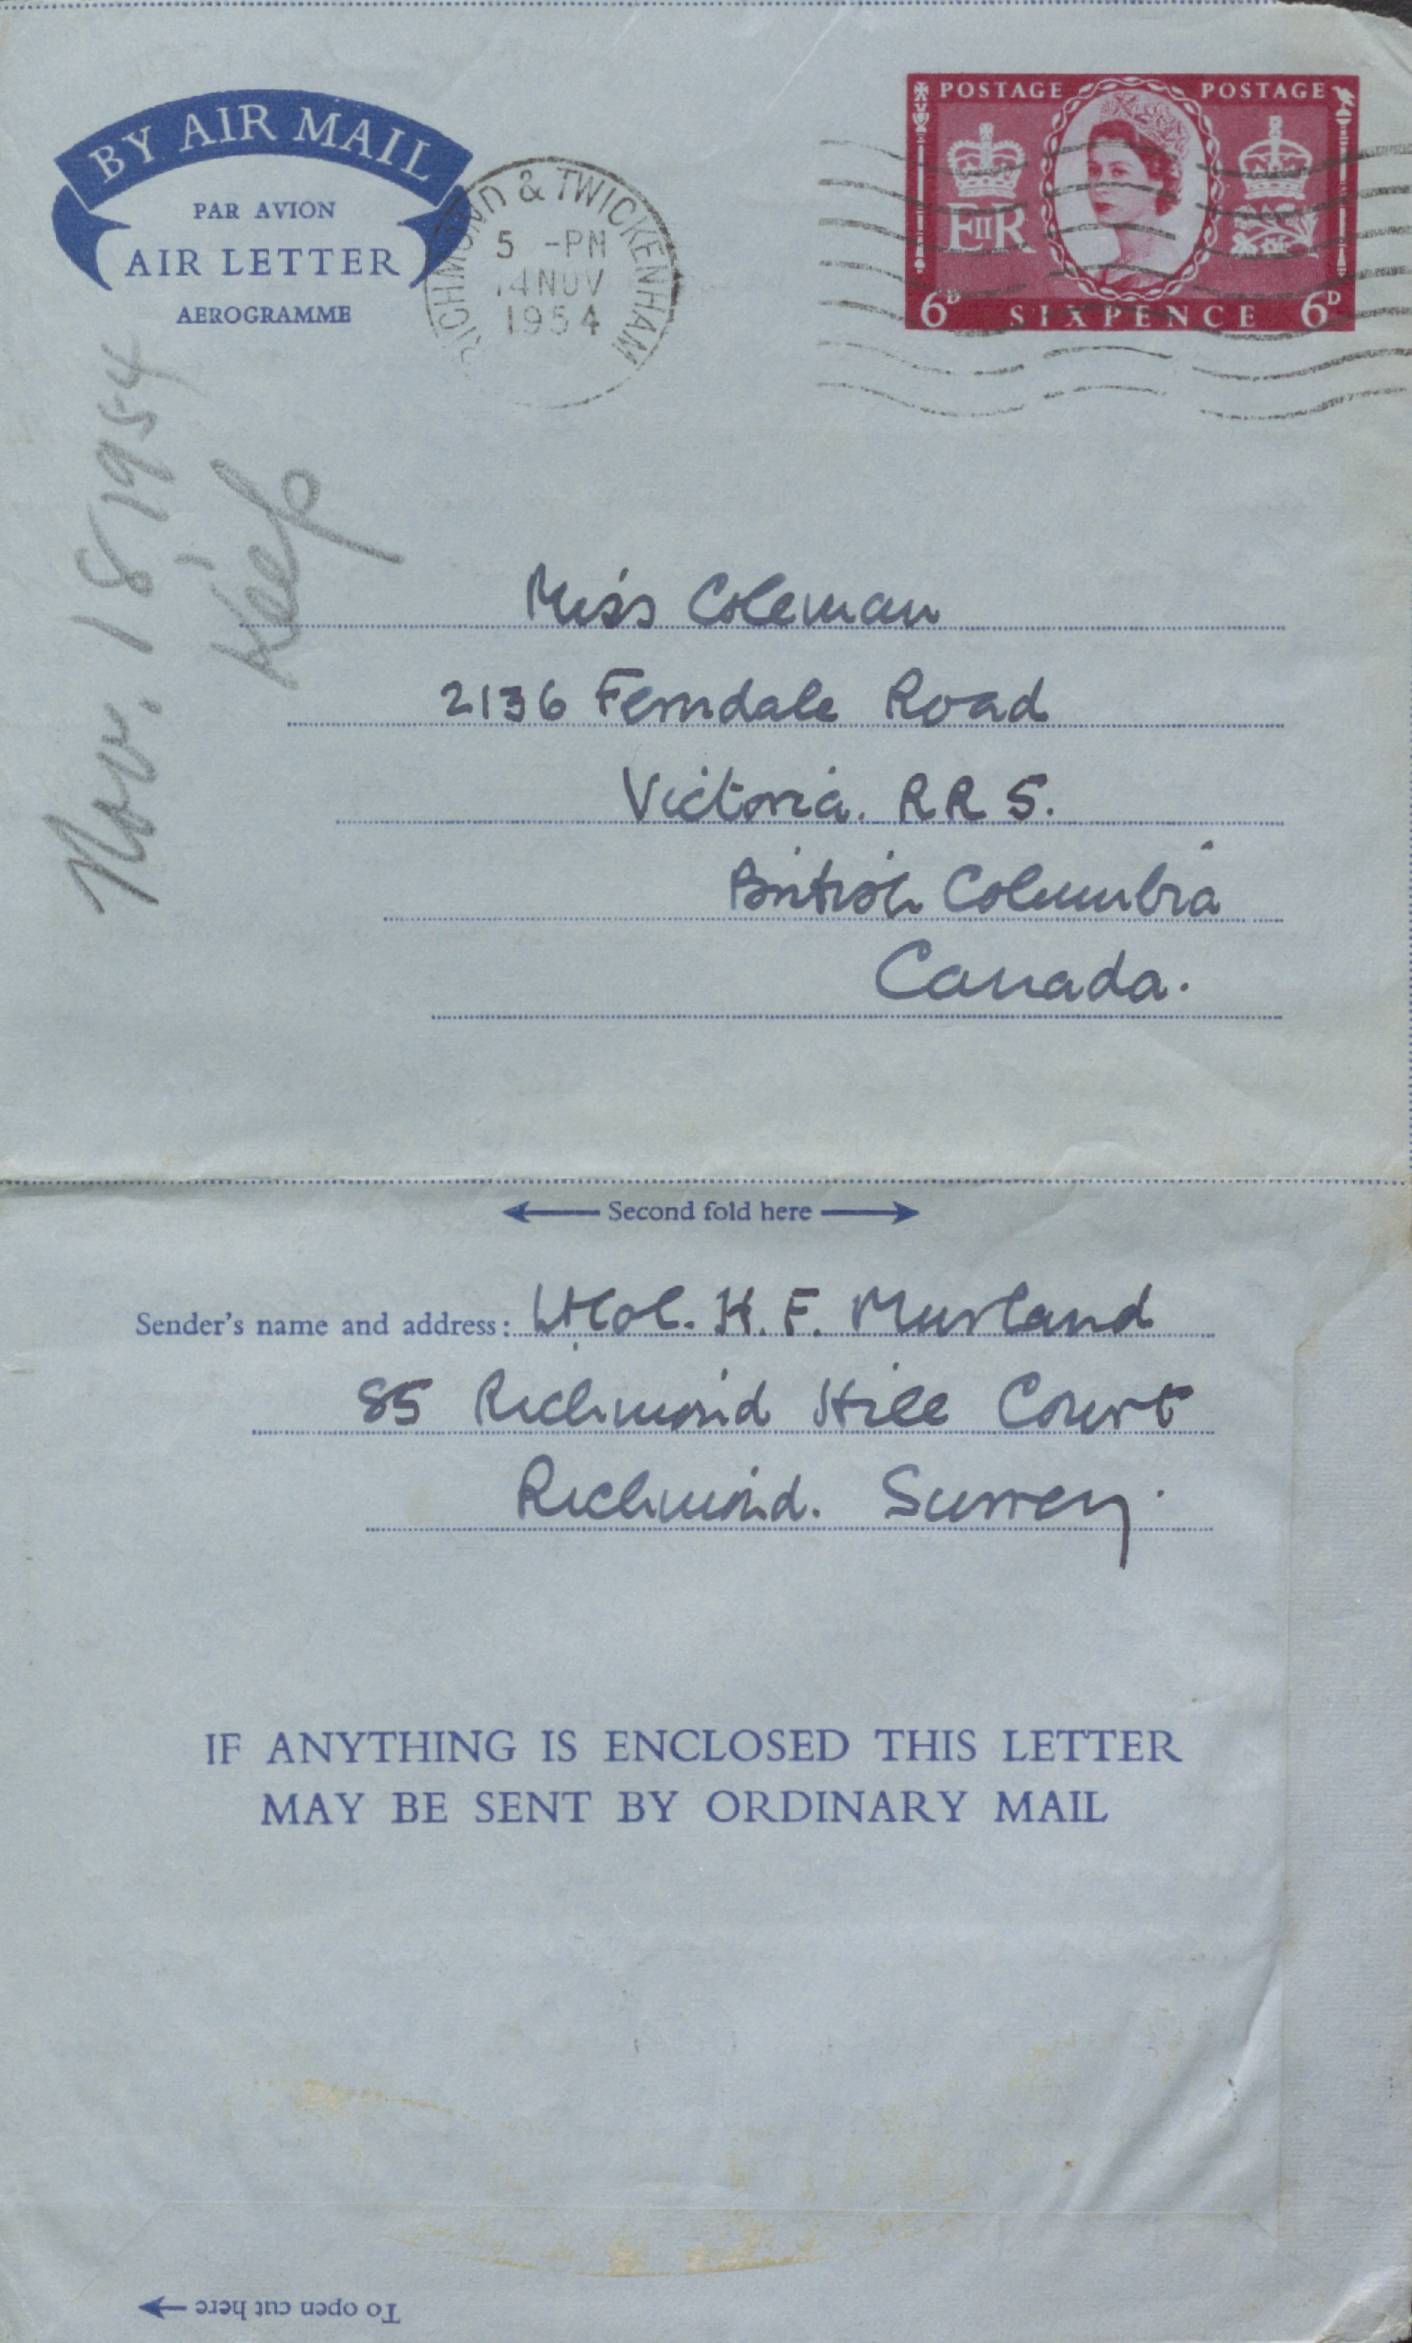 BY AIR MAIL
PAR AVION
AIR LETTER
AEROGRAMME
RICHMOND & TWICKENHAM
5 -PM
14 NOV
1954
POSTAGE POSTAGE
EIIR
6D SIXPENCE 6D
Nov. 18 1954
Keep
Miss Coleman
2136 Ferndale Road
Victoria. RR 5.
British Columbia
Canada.
Second fold here
Sender's name and address: Lt Col. K. F. Murland
85 Richmond Hill Court
Richmond. Surrey.
IF ANYTHING IS ENCLOSED THIS LETTER
MAY BE SENT BY ORDINARY MAIL
To open cut here